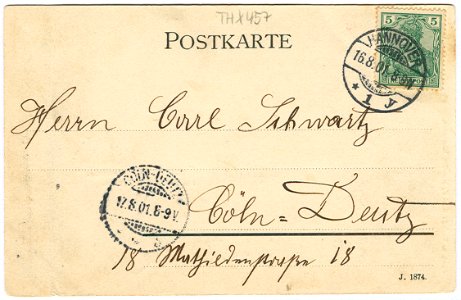 THX457
POSTKARTE
5 5
HANNOVER
16.8.01.
* 1 y
Herrn Carl Schwartz
CÖLN-DEUTZ
17.8.01. 8-9V.
Cöln=Deutz
18 Mathildenstraße 18
J. 1874.